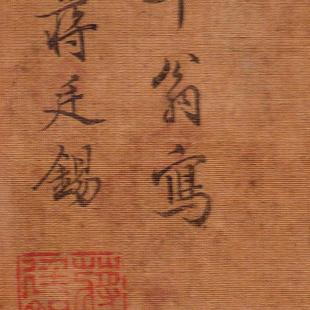 翁寫
蔣廷錫